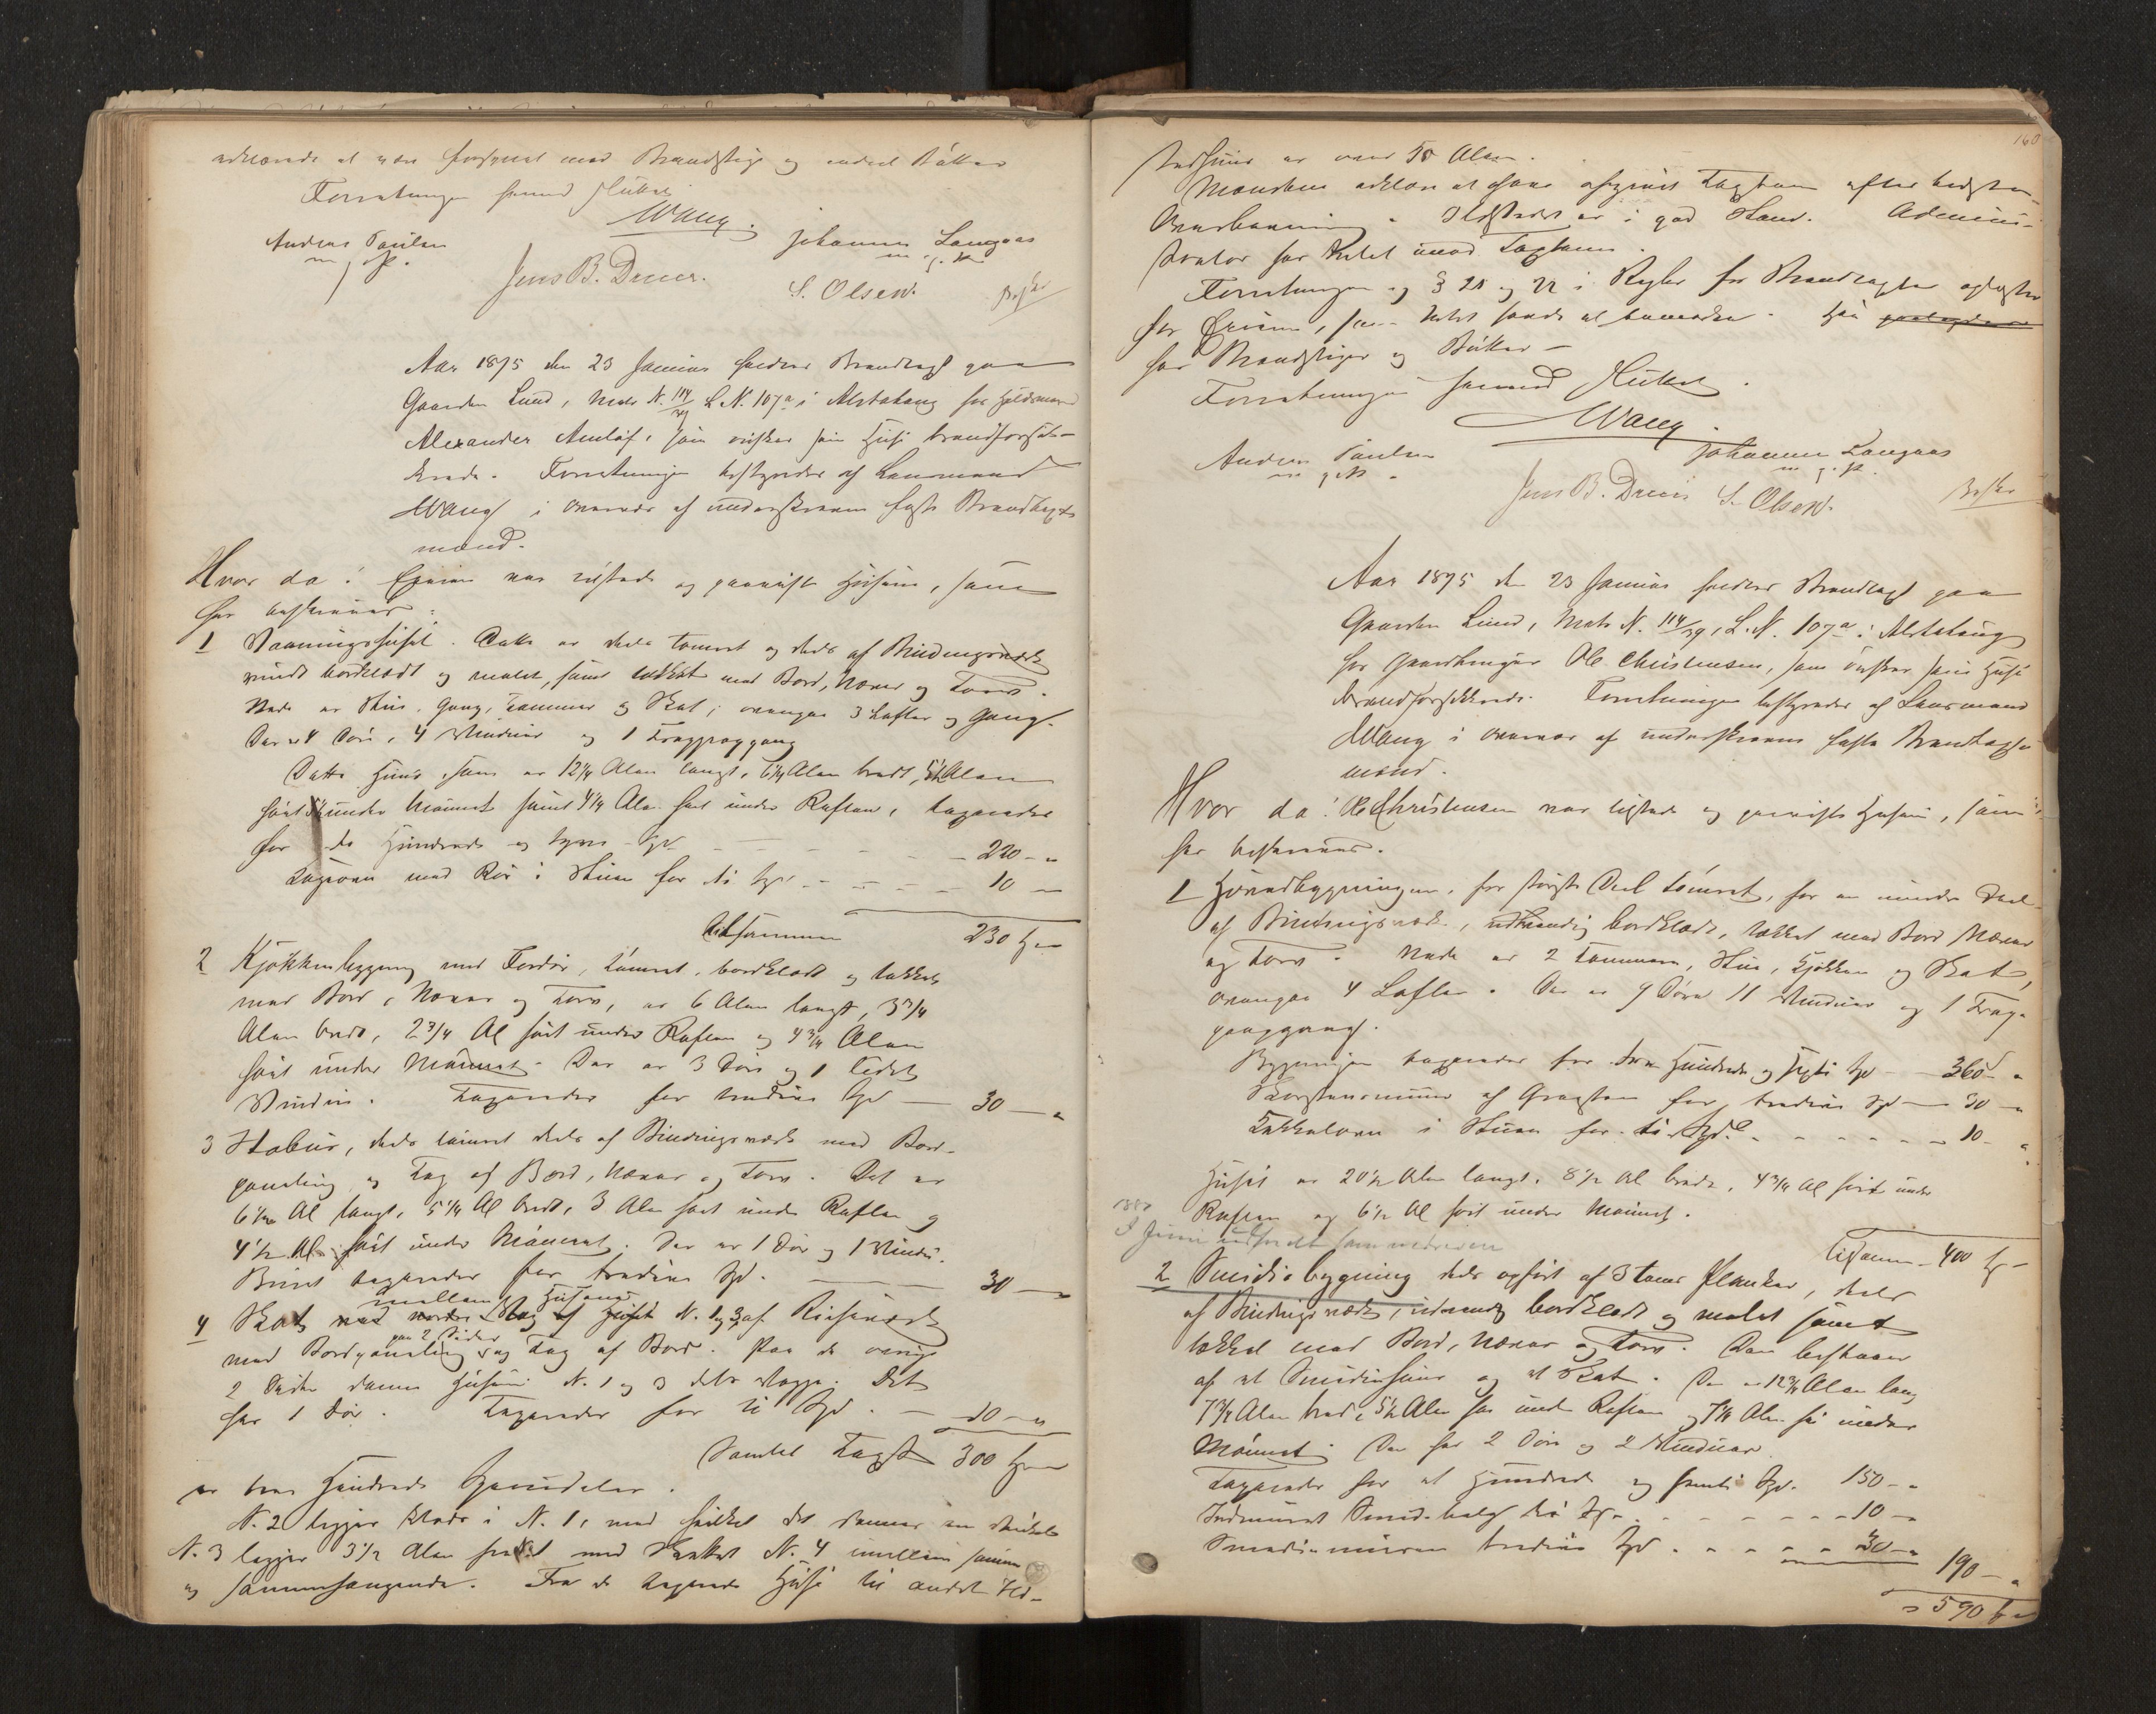 erklærede at være forsynet med Brandstige og andre Bøtter
Forretningen herved sluttet
MWang.
Anders Paulsen
m. p. P.
Johannes Langaas
m. p. P.
Jens B. Dreier.
S. Olsen.
Besk
Aar 1875 den 23 Januar holdtes Brandtaxt paa
Gaarden Lund, Matr N. 114/29 L. N. 107a i Alstahaug for Huusmand
Alexander Amlof, som ønsker sin Huse brandforsik-
krede. Forretningen bestyredes af Lensmand
MWang i Overvær af underskrevne faste Brandtaxt-
mænd.
Hvor da: Eieren var tilstede og paaviste Husene, som
her beskrives:
1 Vaaningshuset. Dette er dels tømret og dels af Bindingsværk
rundt bordklædt og malet, samt tækket med Bord, Næver og Torv.
Nede er Stue, Gang, Kammer og Skot; ovenpaa 3 Lofter og Gang.
Der er 4 Døre, 4 Vinduer og 1 Trappegang
Dette Huus, som er 12 1/4 Alen langt, 6 1/4 Alen bredt, 5 1/2 Alen
høit under Mønnet samt 4 1/4 Alen høit under Raften, taxeredes
for to Hundrede og tyve Spd - - - - - 220 - "
Kogeovn med Rør i Stuen for ti Spd - - - - - 10 -
Tilsammen 230 Spd
2 Kjøkkenbygning med Fordør, tømret, bordklædt og tækket
med Bord, Næver og Torv, er 6 Alen langt, 3 3/4
Alen bredt, 2 3/4 Al høit under Raften og 4 3/4 Alen
høit under Mønnet. Der er 3 Døre og 1 lidet
Vindue. Taxeredes for tredive Spd — 30 — "
3 Stabur, dels tømret dels af Bindingsværk med Bord-
paneling og Tag af Bord, Næver og Torv. Det er
6 1/2 Al langt, 5 1/4 Al bredt, 3 Alen høit under Raften og
4 1/2 Al høit under Mønnet. Der er 1 Dør og 1 Vindue.
Buret taxeredes for tredive Spd. — 30 — "
mellem Husene
4 Skot ved Væg af Huset N. 1 og 3, af Reisværk
paa 2 Sider
med Bordpaneling og Tag af Bord. Paa de øvrige
2 Sider danner Husene N. 1 og 3 dets Vægge. Det
har 1 Dør. Taxeredes for ti Spd. — 10 — "
Samlet Taxt 300 Spd
er tre Hundrede Speciedaler.
N. 2 ligger klods i N. 1, med hvilket det danner en Vinkel
N. 3 ligger 3 1/2 Alen fra N. 1 med Skottet N. 4 imellem samme
og sammenhængende. Fra de taxerede Huse til andet Ild-
160
stedhuus er over 50 Alen.
Manden erklærer at have afgivet Taxtsum efter bedste
Overbevisning. Ildstedet er i god Stand. Admini-
strator har Intet imod Taxtsum.
Forretningen og § 21 og 22 i Regler for Brandtaxter oplæstes
for Eieren, som Intet havde at bemærke. Han
har Brandstiger og Bøtter —
Forretningen herved sluttet.
MWang.
Anders Paulsen
m. p. P.
Johannes Langaas
m. p. P.
Jens B. Dreier S. Olsen.
Besk
Aar 1875 den 23 Januar holdtes Brandtaxt paa
Gaarden Lund, Matr N. 114/29, L. N. 107a i Alstahaug
for Gaardbruger Ole Christensen, som ønsker sine Huse
brandforsikkrede. Forretningen bestyredes af Lensmand
MWang i Overvær af underskrevne faste Brandtaxt-
mænd.
Hvor da: Ole Christensen var tilstede og paaviste Husene, som
her beskrives.
1 Hovedbygningen, for største Deel tømret, for en mindre Deel
af Bindingsværk, udvendig bordklædt, tækket med Bord Næver
og Torv. Nede er 2 Kammere, Stue, Kjøkken og Skot,
ovenpaa 4 Lofter. Der er 9 Døre 11 Vinduer og 1 Trap-
pegang.
Bygningen taxeredes for tre Hundrede og sexti Spd — 360 - "
Skorstensmuur af Graasten for tredive Spd — 30 - "
Kakkelovn i Stuen for ti Spd. - - - - 10 - "
Huset er 20 1/2 Alen langt, 8 1/2 Al bredt, 4 3/4 Al høit under
Raften og 6 1/2 Al høit under Mønnet.
Tilsammen - 400 Sp -
2 Smidiebygning dels opført af 3 Toms Planker, dels
af Bindingsværk, udvendig bordklædt og malet samt
tækket med Bord, Næver og Torv. Den bestaaer
af et Smidiehuus og et Skot. Den er 12 3/4 Alen lang
7 3/4 Alen bred, 5 1/2 Alen høi under Raften og 7 1/4 Alen høi under
Mønnet. Den har 2 Døre og 2 Vinduer.
Taxeredes for et Hundrede og femti Spd. 150 - "
Indmuret Smidebælg ti Sp. - - - - 10 - "
Smediemuren tredive Spd - - - - 30 - "
190 - "
590 Sp